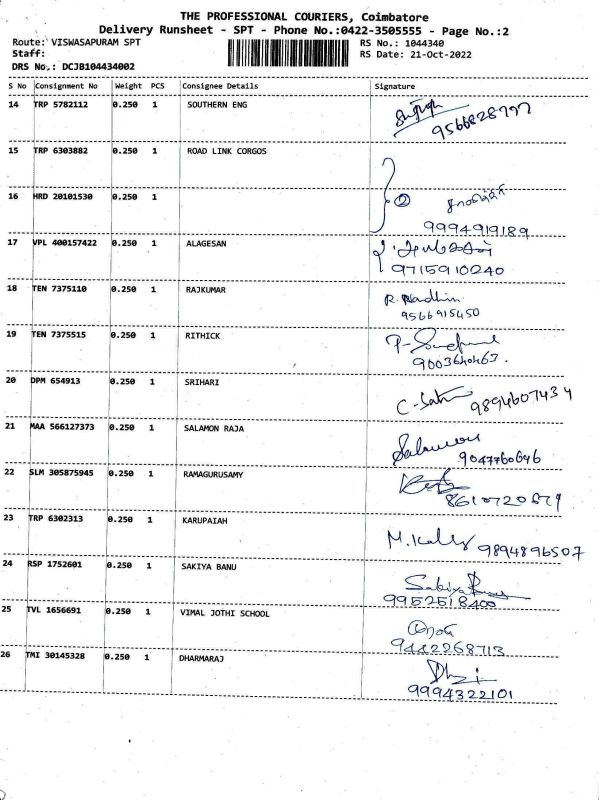 THE PROFESSIONAL COURIERS, Coimbatore
Delivery Runsheet - SPT - Phone No.:0422-3505555 - Page No.:2
Route: VISWASAPURAM SPT RS No.: 1044340
Staff: RS Date: 21-Oct-2022
DRS No.: DCJB104434002
S No Consignment No Weight PCS Consignee Details Signature
14 TRP 5782112 0.250 1 SOUTHERN ENG
9566828797
15 TRP 6303882 0.250 1 ROAD LINK CORGOS
16 HRD 20101530 0.250 1 2
9994919189
17 VPL 400157422 0.250 1 ALAGESAN
9715910240
18 TEN 7375110 0.250 1 RAJKUMAR R.
9566915450
19 TEN 7375515 0.250 1 RITHICK
9003640463.
20 DPM 654913 0.250 1 SRIHARI
9894607434
21 MAA 566127373 0.250 1 SALAMON RAJA
9047760646
22 SLM 305875945 0.250 1 RAMAGURUSAMY
8610720679
23 TRP 6302313 0.250 1 KARUPAIAH M. 9894896507
24 RSP 1752601 0.250 1 SAKIYA BANU Sakiya
9952518400
25 TVL 1656691 0.250 1 VIMAL JOTHI SCHOOL
9442268713
26 TMI 30145328 0.250 1 DHARMARAJ
9994322101